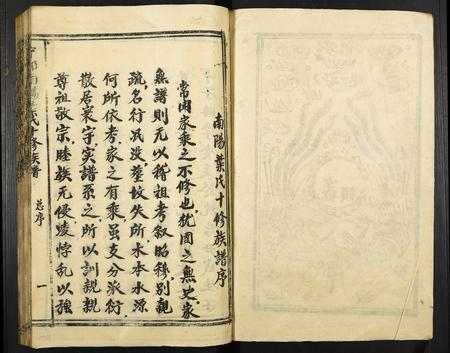 南陽葉氏十修族譜序
常聞家乘之不修也猶國之無史家
無譜則无以稽祖考叙昭穆別親
疏名行汎没塋坟失所木本水源
何所依考家之有乘虽支分派衍
散居寰宇实譜系之所以訓親親
尊祖敬宗睦族无侵凌悖乱以強
氏十修族譜
总序
一